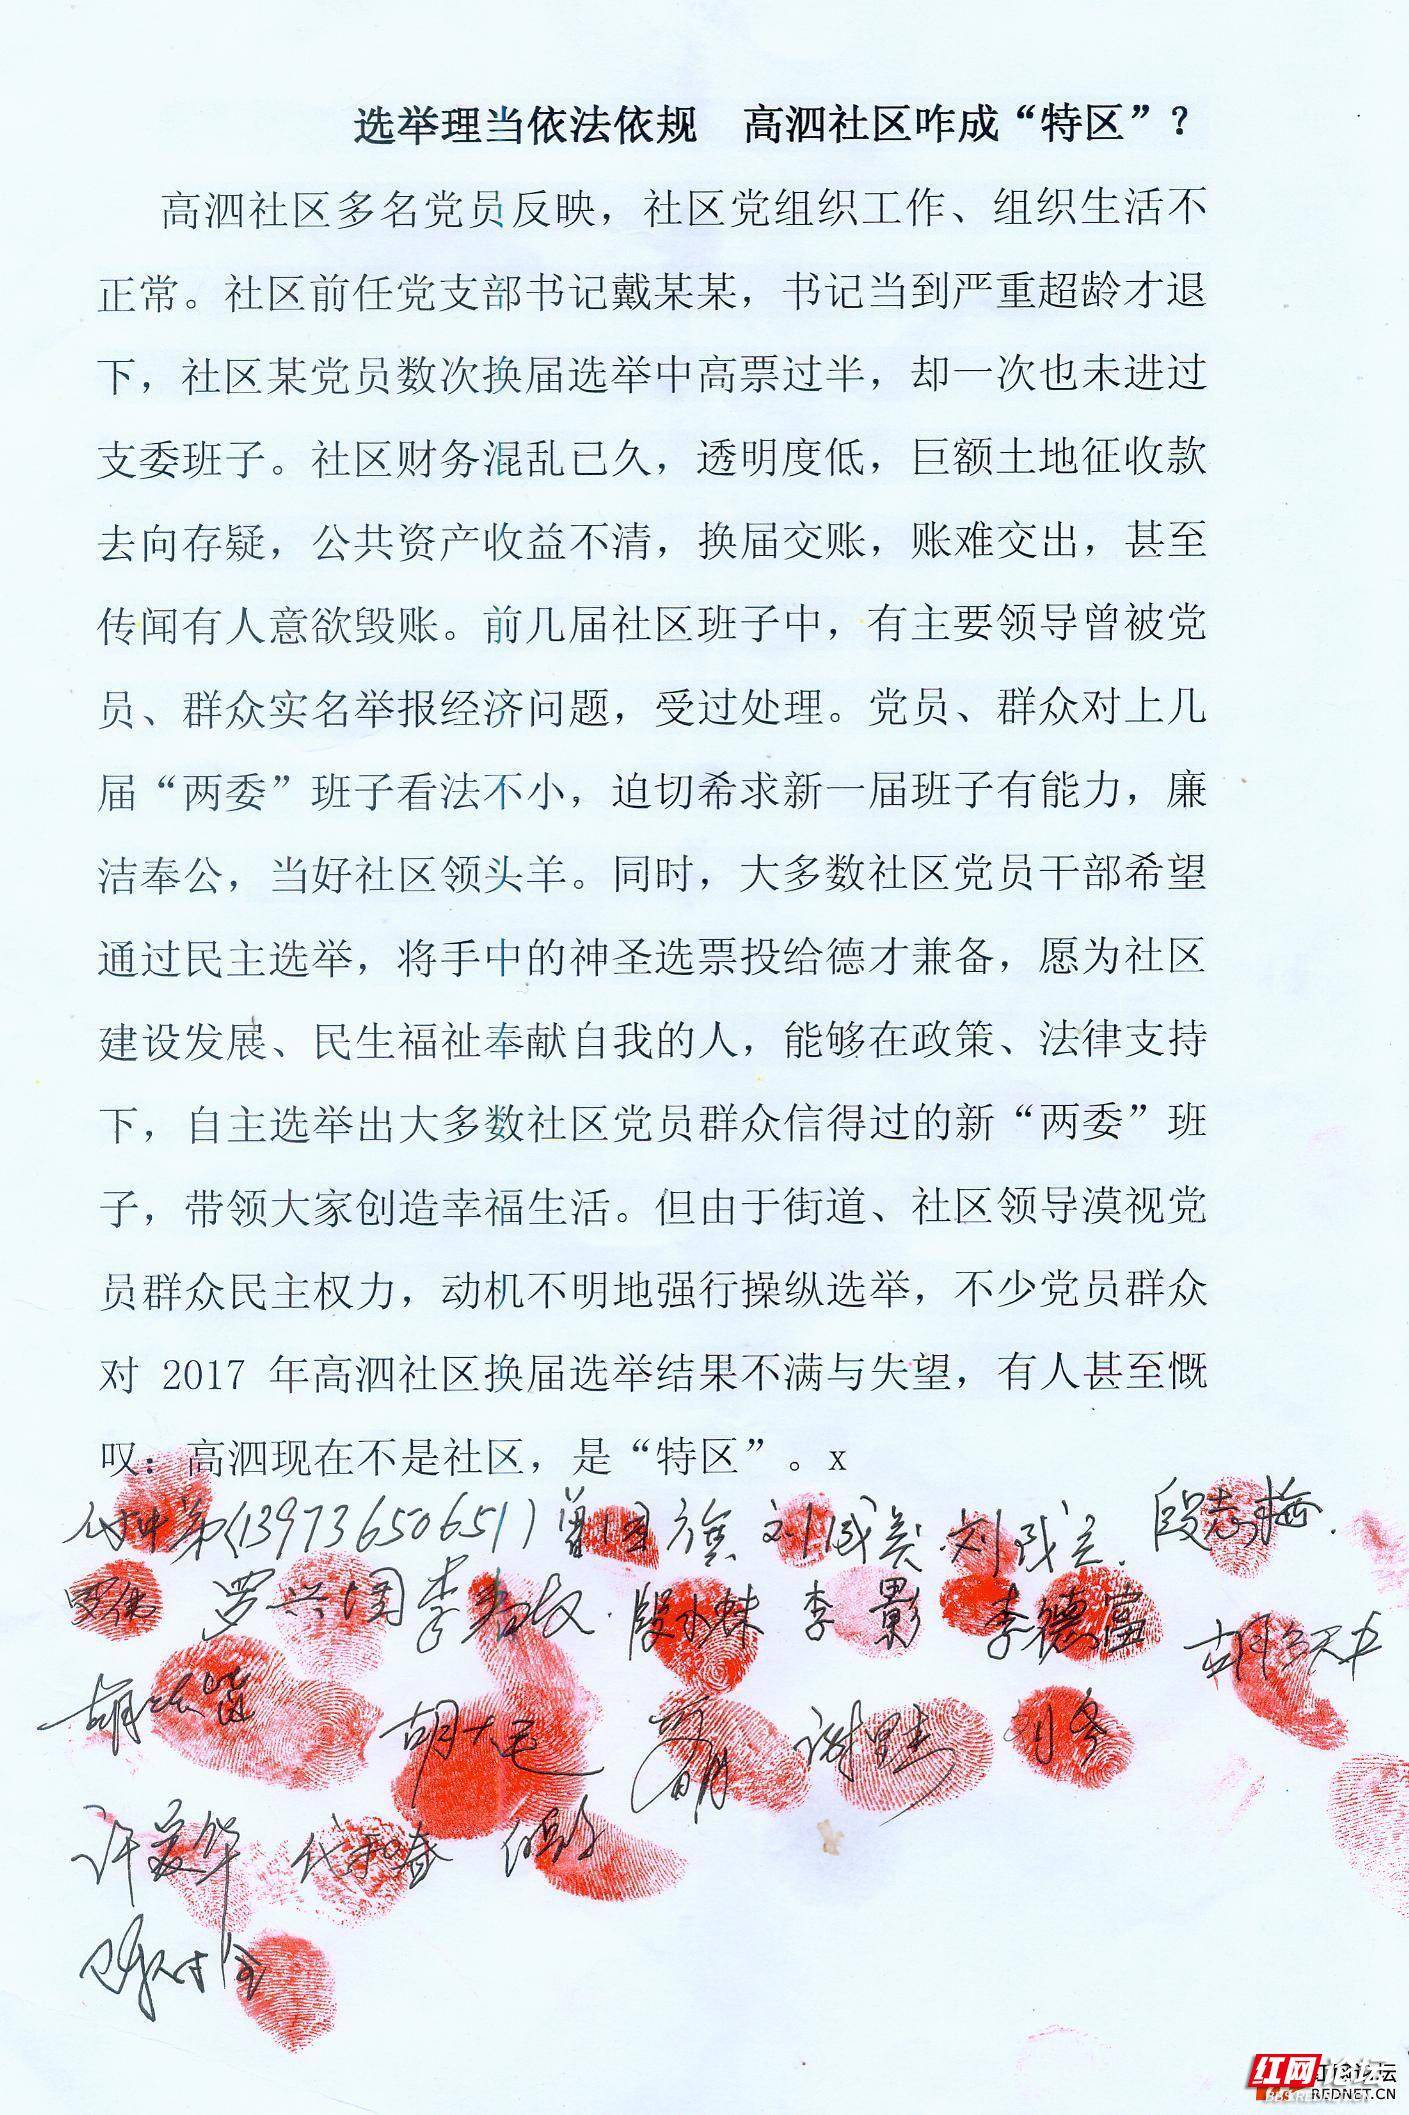 选举理当依法依规　高泗社区咋成“特区”？
高泗社区多名党员反映，社区党组织工作、组织生活不
正常。社区前任党支部书记戴某某，书记当到严重超龄才退
下，社区某党员数次换届选举中高票过半，却一次也未进过
支委班子。社区财务混乱已久，透明度低，巨额土地征收款
去向存疑，公共资产收益不清，换届交账，账难交出，甚至
传闻有人意欲毁账。前几届社区班子中，有主要领导曾被党
员、群众实名举报经济问题，受过处理。党员、群众对上几
届“两委”班子看法不小，迫切希求新一届班子有能力，廉
洁奉公，当好社区领头羊。同时，大多数社区党员干部希望
通过民主选举，将手中的神圣选票投给德才兼备，愿为社区
建设发展、民生福祉奉献自我的人，能够在政策、法律支持
下，自主选举出大多数社区党员群众信得过的新“两委”班
子，带领大家创造幸福生活。但由于街道、社区领导漠视党
员群众民主权力，动机不明地强行操纵选举，不少党员群众
对 2017 年高泗社区换届选举结果不满与失望，有人甚至慨
叹：高泗现在不是社区，是“特区”。x
(13973650651) 刘成美 刘成立. 段志梅.
罗兴国 段小妹 李影 李德富
胡大毛 刘冬
许爱华 代和春
红网论坛
REDNET.CN